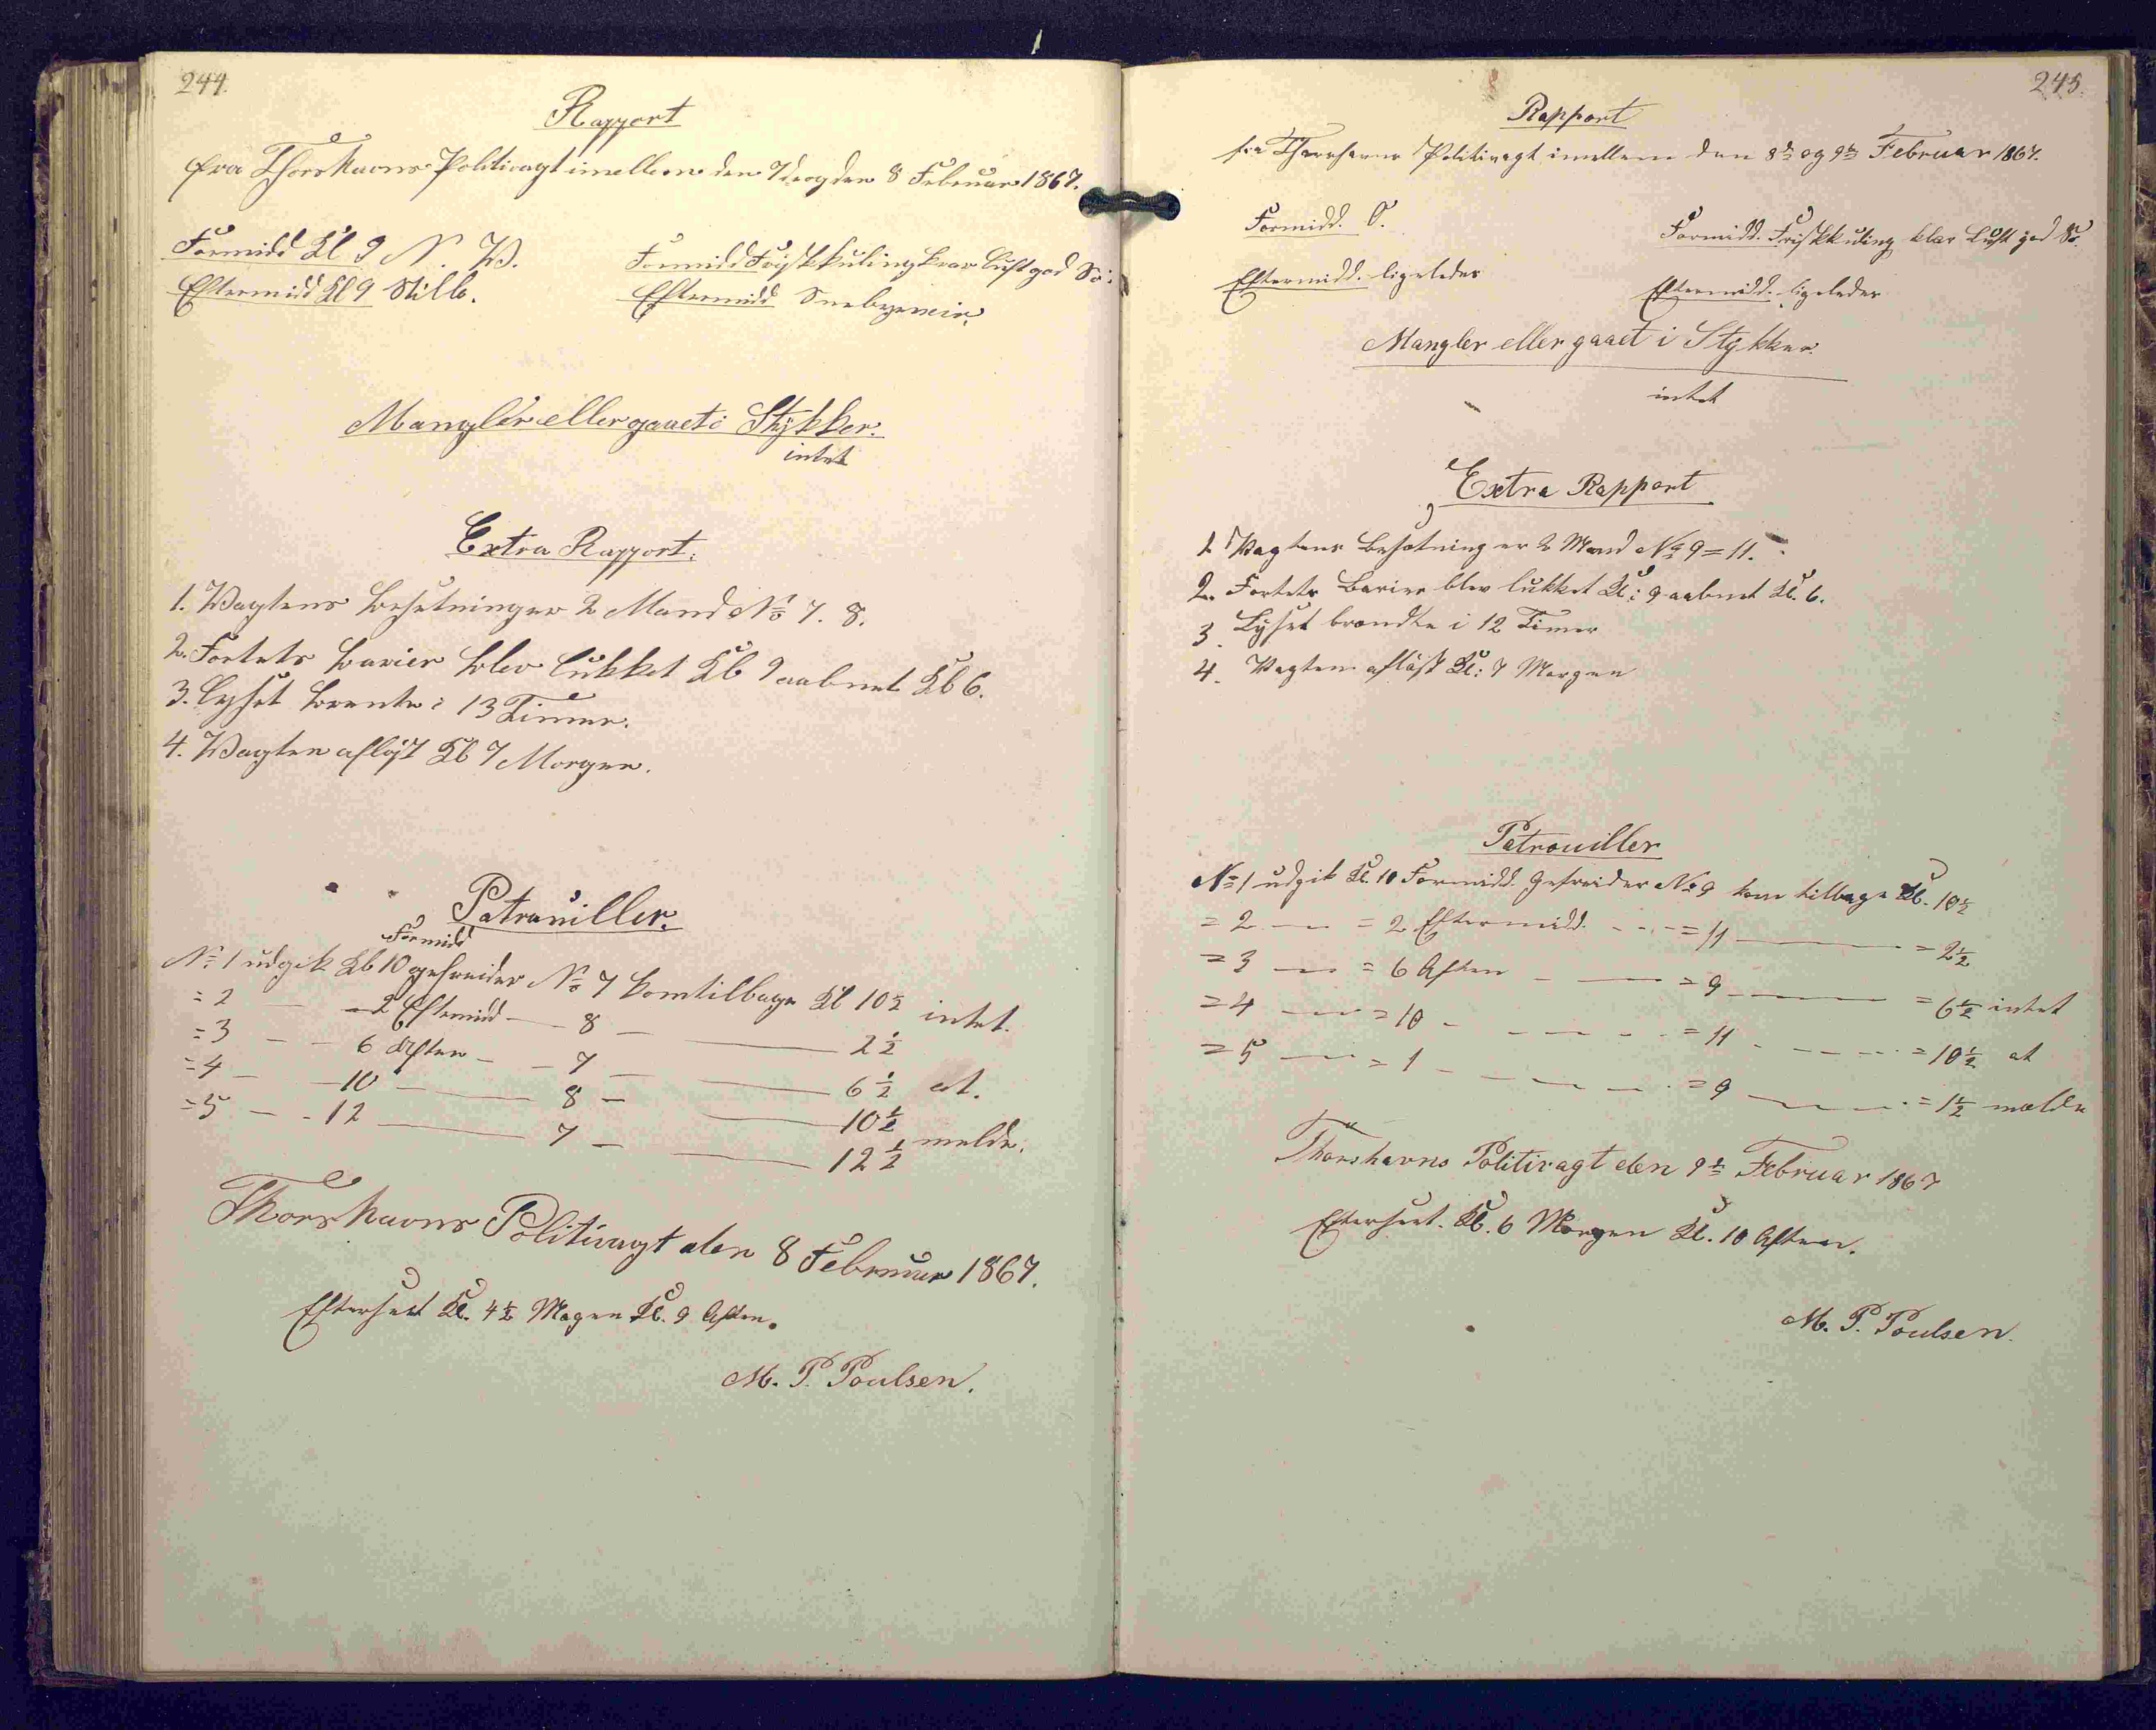 244.
Rapport
fra Thorshavns Politivagt imellem den 7de og den 8 Februar 1867.
Formidd Kl 9 N. W. Formidd Frisk kuling klar Luft god Sö:
Eftermidd Kl 9 Stille. Eftermidd Snebyrneir.
Mangler eller gaaet i Stykker.
intet
Extra Rapport.
1. Wagtens besetning er 2 Mand No 7. 8.
2. Fortets barier blev lukket Kl 9 aabnet Kl 6.
3. Lyset brente i 13 Timer.
4. Wagten afløst Kl 7 Morgen.
Patrouiller.
Formidd
No 1 udgik Kl 10 gefreider No 7 kom tilbage Kl 10½ intet.
= 2 — — 2 Eftemidd — 8 — — 2½
= 3 — — 6 Aften — — 7 — — 6½ at.
= 4 — — 10 — — 8 — — 10½
= 5 — - 12 — — 7 — — 12½ melde.
Thorshavns Politivagt den 8 Februar 1867.
Efterseet Kl. 4½ Magen Kl. 9 Aften.
M. P. Poulsen.
245.
Rapport
fra Thorshavns Politivagt imellem den 8de og 9de Februar 1867.
Formidd. O. Formidd. Frisk kuling klar Luft god Sö.
Eftermidd. ligeledes Eftermidd. ligeledes
Mangler eller gaaet i Stykker.
intet
Extra Rapport
1. Vagtens Besætning er 2 Mand No 9 = 11.
2. Fortets Barier blev lukket Kl: 9 aabnet Kl. 6.
3. Lyset brændte i 12 Timer
4. Vagten afløst Kl: 7 Morgen
Patrouiller
No 1 udgik Kl. 10 Formidd. Gefreider No 9 kom tilbage Kl. 10½
= 2 — = 2 Eftermidd. - - - = 11 — = 2½
= 3 — = 6 Aften — — = 9 — = 6½ intet
= 4 — = 10 - - - - = 11 - - - = 10½ at
= 5 — = 1 - - - - = 9 — = 1½ melde
Thorshavns Politivagt den 9de Februar 1867
Efterseet. Kl. 6 Morgen Kl. 10 Aften.
M. P. Poulsen.